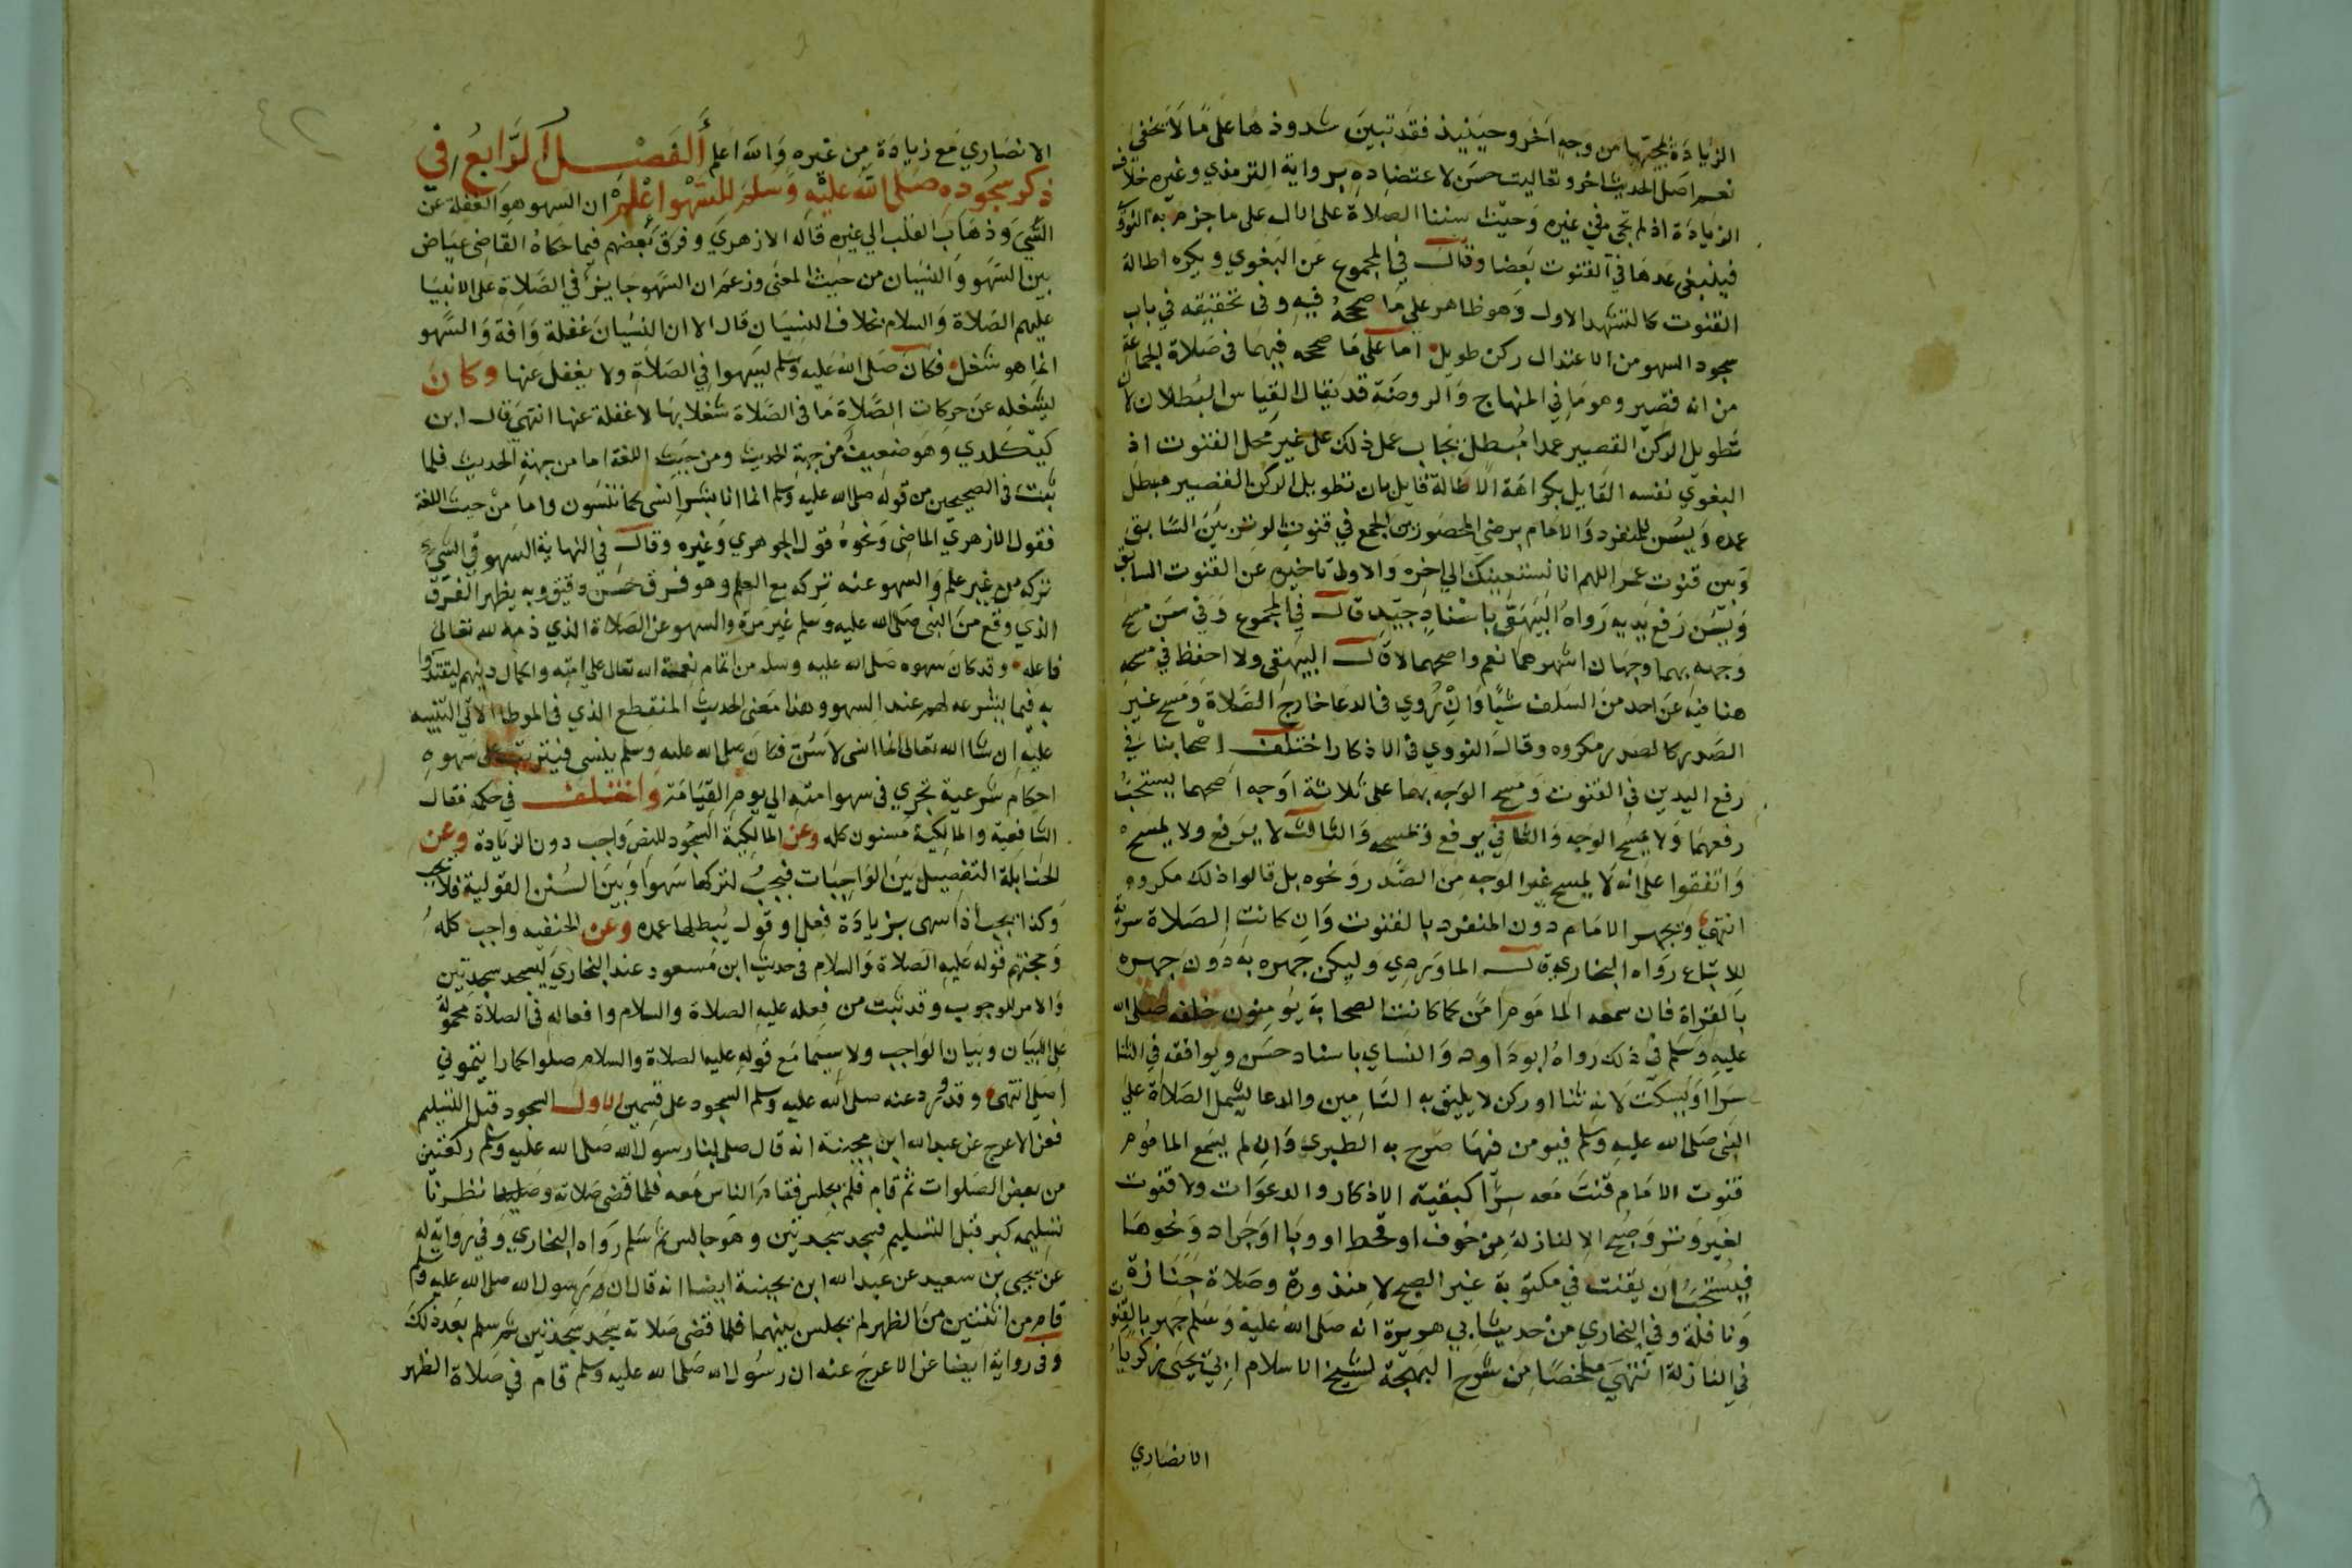 الزيادة لمجيئها من وجه اخر وحينيذ فقد تبين شذوذها على ما لا يخفى
نعم اصل الحديث اخر وتعاليت حسن لاعتضاده برواية الترمذي وغيره خلاف
الزيادة اذ لم تجي في غيره وحيث سننا الصلاة على الال على ما جزم به النووي
فينبغي عدها في القنوت بعضا وقال في المجموع عن البغوي ويكره اطالة
القنوت كالتشهد الاول وهو ظاهر على ما صححه فيه وفي تحقيقه في باب
سجود السهو من الاعتدال ركن طويل اما على ما صححه فيهما في صلاة الجماعة
من انه قصير وهو ما في المنهاج والروضة قد يقال القياس البطلان لان
تطويل الركن القصير عمدا مبطل يجاب عمل ذلك على غير محل القنوت اذ
البغوي نفسه القايل بكراهة الاطالة قايل بان تطويل الركن القصير مبطل
عمده ويسن للمنفرد والامام برضى المحصورين الجمع في قنوت الوتر بين السابق
وبين قنوت عمر اللهم انا نستعينك الى اخره والاولى تاخيره عن القنوت السابق
ويسن رفع يديه رواه البيهقي باسناد جيد قال في المجموع وفي سن مسح
وجهه بهما وجهان اشهرهما نعم واصحهما لا قال البيهقي ولا احفظ في مسحه
هنا فيه عن احد من السلف شيا وان روي في الدعا خارج الصلاة ومسح غير
الصدر كالصدر مكروه وقال النووي في الاذكار اختلف اصحابنا في
رفع اليدين في القنوت ومسح الوجه بهما على ثلاثة اوجه اصحهما يستحب
رفعهما ولا يمسح الوجه والثاني يرفع ويمسحه والثالث لا يرفع ولا يمسح
واتفقوا على انه لا يمسح غير الوجه من الصدر ونحوه بل قالوا ذلك مكروه
انتهى ويجهر الامام دون المنفرد بالقنوت وان كانت الصلاة سرية
للاتباع رواه البخاري قال الماوردي وليكن جهره به دون جهره
بالقراة فان سمعه الماموم امن كما كانت الصحابة يؤمنون خلفه صلى الله
عليه وسلم في ذلك رواه ابو داود والنساي باسناد حسن ويوافقه في الثنا
سرا او يسكت لانه ثنا او ركن لا يليق به التامين والدعا يشمل الصلاة على
النبي صلى الله عليه وسلم فيومن فيها صرح به الطبري وان لم يسمع الماموم
قنوت الامام قنت معه سرا كبقية الاذكار والدعوات ولا قنوت
لغير وتر وصبح الا لنازلة من خوف او قحط او وبا او جراد ونحوها
فيستحب ان يقنت في مكتوبة غير الصبح لا منذورة وصلاة جنازة
ونافلة وفي البخاري من حديث ابي هريرة انه صلى الله عليه وسلم جهر بالقنوت
في النازلة انتهى ملخصا من شرح البهجة لشيخ الاسلام ابي يحيى زكريا
الانصاري
٤٢
الانصاري مع زيادة من غيره والله اعلم الفصل الرابع في
ذكر سجوده صلى الله عليه وسلم للسهو اعلم ان السهو هو الغفلة عن
الشي وذهاب القلب الى غيره قاله الازهري وفرق بعضهم فيما حكاه القاضي عياض
بين السهو والنسيان من حيث المعنى وزعم ان السهو جايز في الصلاة على الانبيا
عليهم الصلاة والسلام بخلاف النسيان قال الا ان النسيان غفلة وافة والسهو
انما هو شغل فكان صلى الله عليه وسلم يسهوا في الصلاة ولا يغفل عنها وكان
يشغله عن حركات الصلاة ما في الصلاة شغلا بها لا غفلة عنها انتهى قال ابن
كيكلدي وهو ضعيف من جهة الحديث ومن حيث اللغة اما من جهة الحديث فلما
ثبت في الصحيحين من قوله صلى الله عليه وسلم انما انا بشر انسى كما تنسون واما من حيث اللغة
فقول الازهري الماضي ونحوه قول الجوهري وغيره وقال في النهاية السهو في الشي
تركه من غير علم والسهو عنه تركه مع العلم وهو فرق حسن دقيق وبه يظهر الفرق
الذي وقع من النبي صلى الله عليه وسلم غير مرة والسهو عن الصلاة الذي ذمه الله تعالى
فاعله وقد كان سهوه صلى الله عليه وسلم من اتمام نعمة الله تعالى على امته واكمال دينهم ليقتدوا
به فيما يشرعه لهم عند السهو وهذا معنى الحديث المنقطع الذي في الموطا الاتي التنبيه
عليه ان شا الله تعالى انما انسى لاسن فكان صلى الله عليه وسلم ينسى فيترتب على سهوه
احكام شرعية تجري في سهو امته الى يوم القيامة واختلف في حكمه فقال
الشافعية والمالكية مسنون كله وعن المالكية السجود للنقص واجب دون الزيادة وعن
الحنابلة التفصيل بين الواجبات فيجب لتركها سهوا وبين السنن القولية فلا يجب
وكذا يجب اذا سهى بزيادة فعل او قول يبطلها عمده وعن الحنفيه واجب كله
وحجتهم قوله عليه الصلاة والسلام في حديث ابن مسعود عند البخاري ليسجد سجدتين
والامر للوجوب وقد ثبت من فعله عليه الصلاة والسلام وافعاله في الصلاة محمولة
على البيان وبيان الواجب ولا سيما مع قوله عليه الصلاة والسلام صلوا كما رايتموني
اصلي انتهى وقد ورد عنه صلى الله عليه وسلم السجود على قسمين الاول السجود قبل التسليم
فعن الاعرج عن عبد الله ابن بحينة انه قال صلى لنا رسول الله صلى الله عليه وسلم ركعتين
من بعض الصلوات ثم قام فلم يجلس فقام الناس معه فلما قضى صلاته نظرنا
تسليمه كبر قبل التسليم فسجد سجدتين وهو جالس ثم سلم رواه البخاري وفي رواية له
عن يحيى بن سعيد عن عبد الله ابن بحينة ايضا انه قال ان رسول الله صلى الله عليه وسلم
قام من اثنتين من الظهر لم يجلس بينهما فلما قضى صلاته سجد سجدتين ثم سلم بعد ذلك
وفي رواية ايضا عن الاعرج عنه ان رسول الله صلى الله عليه وسلم قام في صلاة الظهر